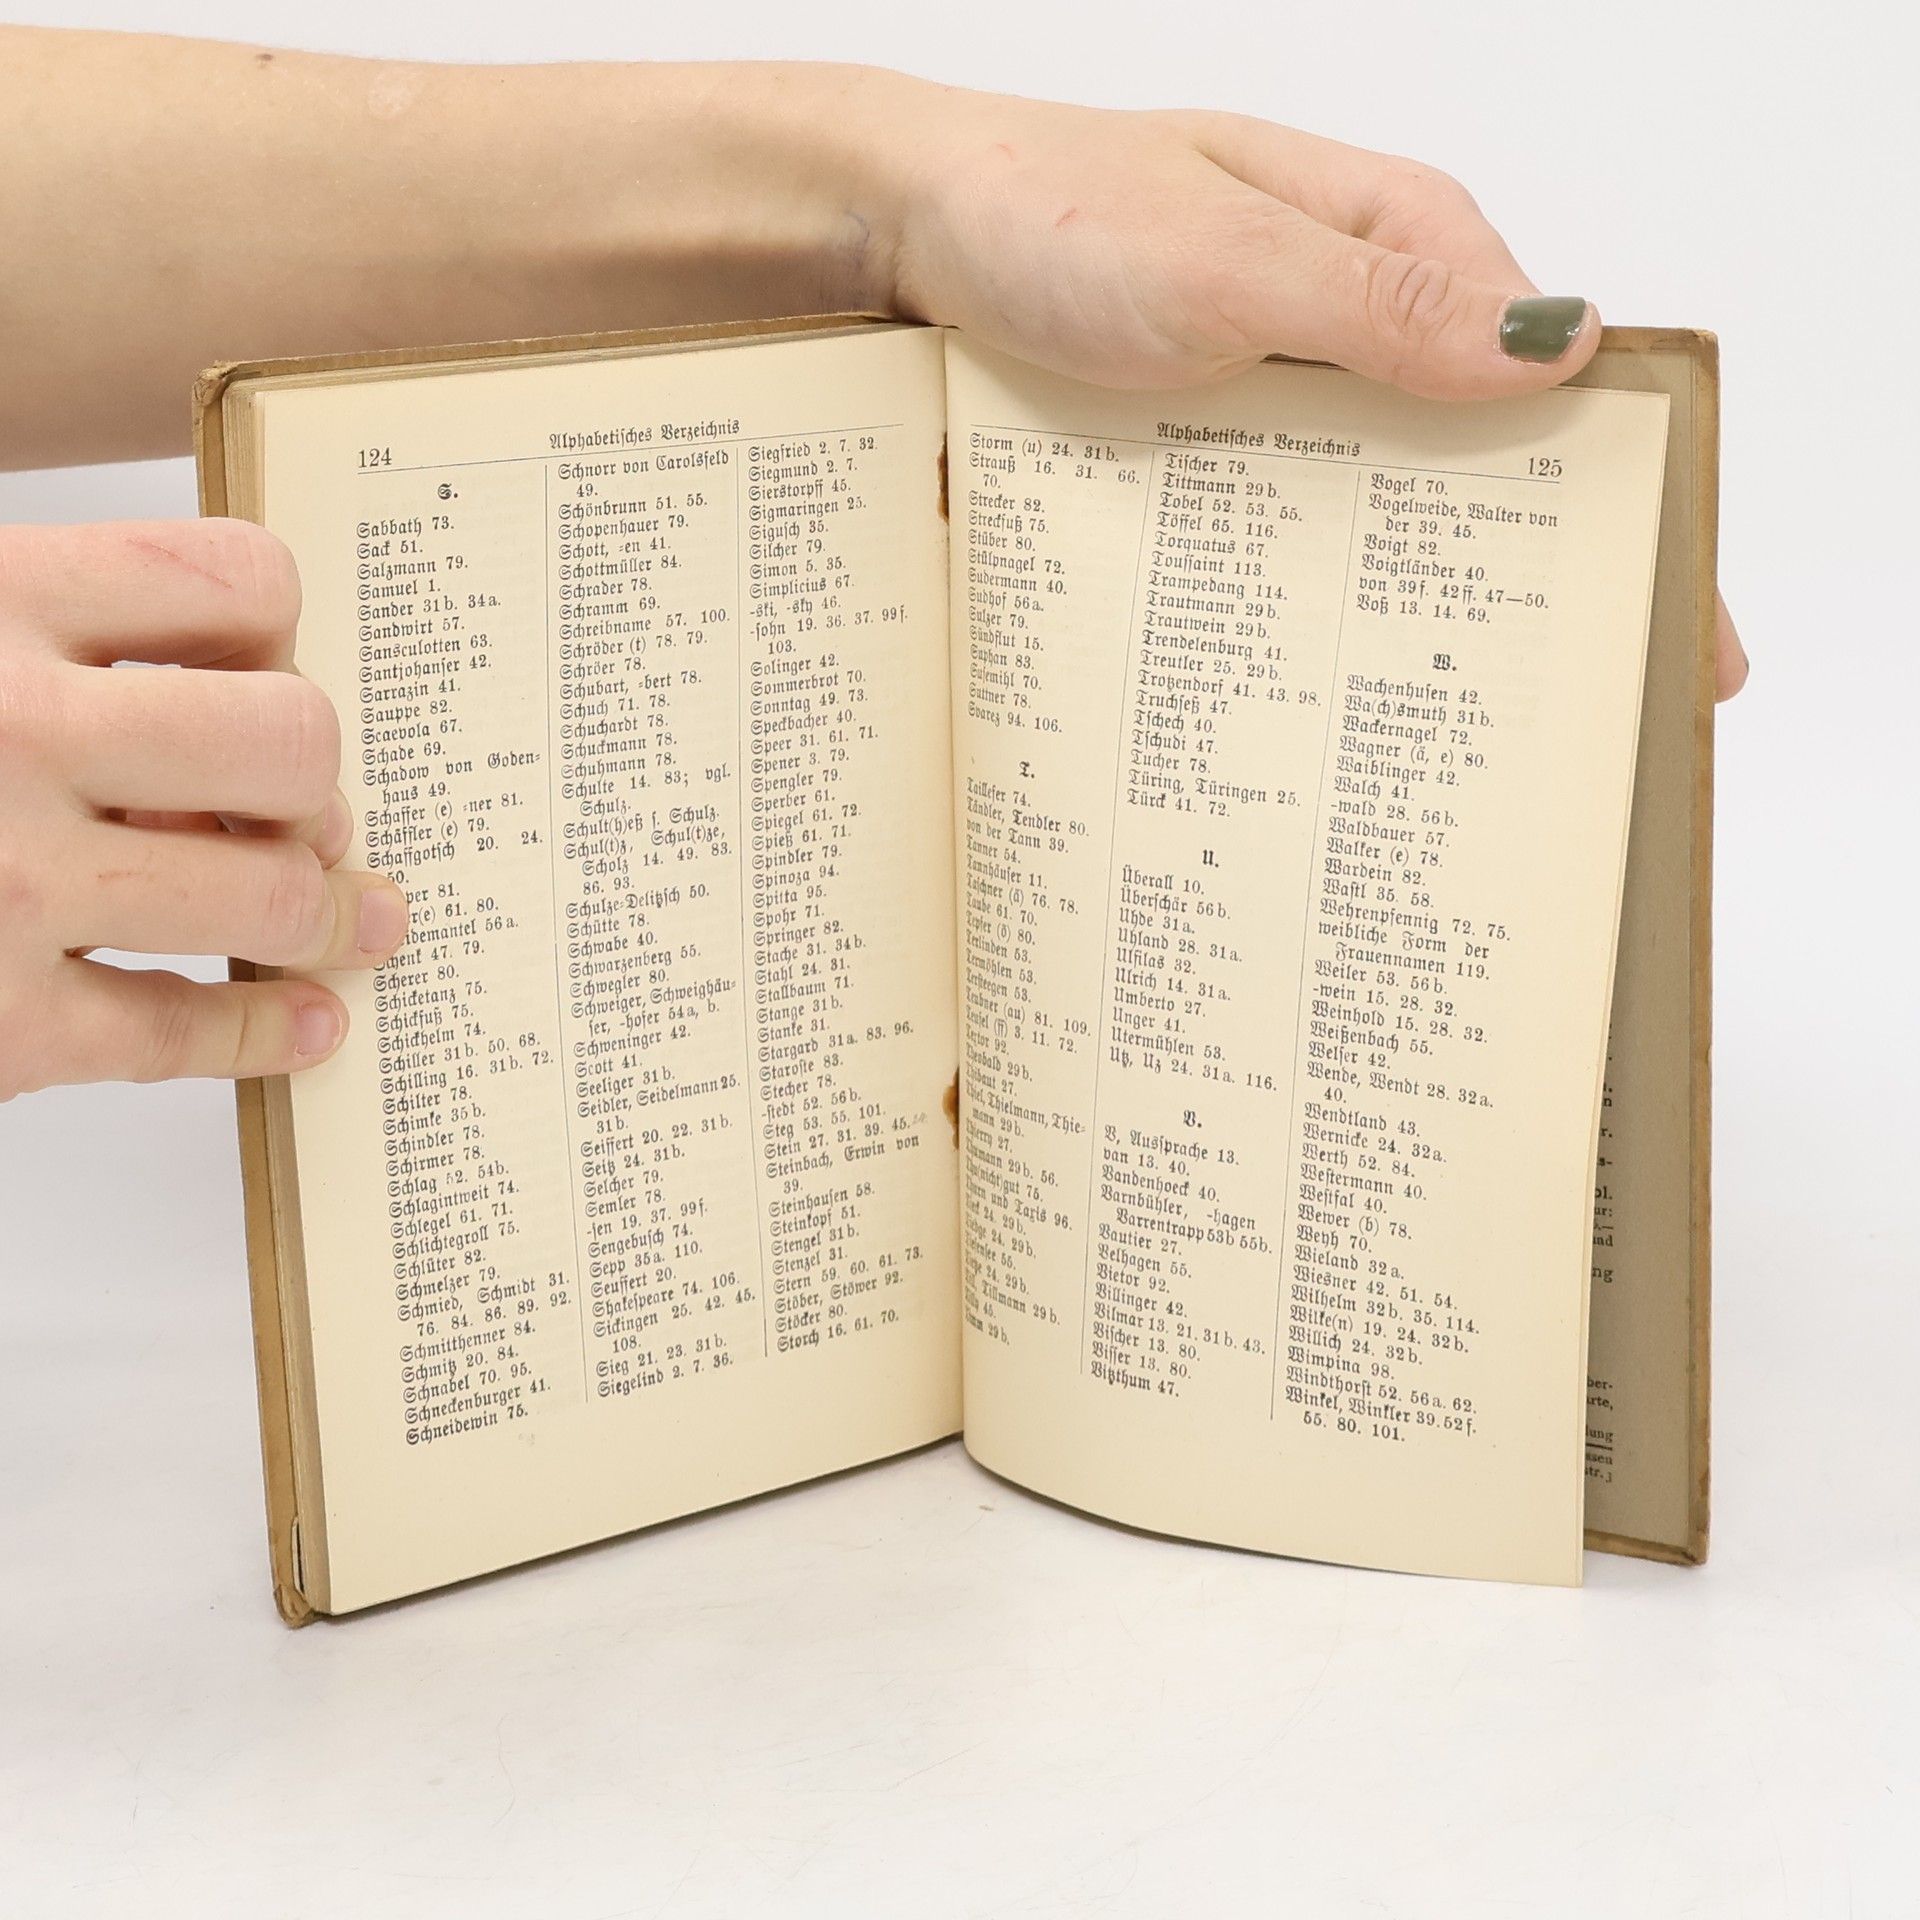 124
Alphabetisches Verzeichnis
S.
Sabbath 73.
Sack 51.
Salzmann 79.
Samuel 1.
Sander 31b. 34a.
Sandwirt 57.
Sansculotten 63.
Santjohanser 42.
Sarrazin 41.
Sauppe 82.
Scaevola 67.
Schade 69.
Schadow von Goden-
haus 49.
Schaffer (e) -ner 81.
Schäffler (e) 79.
Schaffgotsch 20. 24.
50.
per 81.
r(e) 61. 80.
idemantel 56a.
Schenk 47. 79.
Scherer 80.
Schicketanz 75.
Schickfuß 75.
Schickhelm 74.
Schiller 31b. 50. 68.
Schilling 16. 31b. 72.
Schilter 78.
Schimke 35b.
Schindler 78.
Schirmer 78.
Schlag 52. 54b.
Schlagintweit 74.
Schlegel 61. 71.
Schlichtegroll 75.
Schlüter 82.
Schmelzer 79.
Schmied, Schmidt 31.
76. 84. 86. 89. 92.
Schmitthenner 84.
Schmitz 20. 84.
Schnabel 70. 95.
Schneckenburger 41.
Schneidewin 75.
Schnorr von Carolsfeld
49.
Schönbrunn 51. 55.
Schopenhauer 79.
Schott, -en 41.
Schottmüller 84.
Schrader 78.
Schramm 69.
Schreibname 57. 100.
Schröder (t) 78. 79.
Schröer 78.
Schubart, -bert 78.
Schuch 71. 78.
Schuchardt 78.
Schuckmann 78.
Schuhmann 78.
Schulte 14. 83; vgl.
Schulz.
Schult(h)eß s. Schulz.
Schul(t)z, Schul(t)ze,
Scholz 14. 49. 83.
86. 93.
Schulze-Delitzsch 50.
Schütte 78.
Schwabe 40.
Schwarzenberg 55.
Schwegler 80.
Schweiger, Schweighäu-
ser, -hofer 54a, b.
Schweninger 42.
Scott 41.
Seeliger 31b.
Seidler, Seidelmann 25.
31b.
Seiffert 20. 22. 31b.
Seitz 24. 31b.
Selcher 79.
Semler 78.
-sen 19. 37. 99f.
Sengebusch 74.
Sepp 35a. 110.
Seuffert 20.
Shakespeare 74. 106.
Sickingen 25. 42. 45.
108.
Sieg 21. 23. 31b.
Siegelind 2. 7. 36.
Siegfried 2. 7. 32.
Siegmund 2. 7.
Sierstorpff 45.
Sigmaringen 25.
Sigusch 35.
Silcher 79.
Simon 5. 35.
Simplicius 67.
-ski, -sky 46.
-sohn 19. 36. 37. 99f.
103.
Solinger 42.
Sommerbrot 70.
Sonntag 49. 73.
Speckbacher 40.
Speer 31. 61. 71.
Spener 3. 79.
Spengler 79.
Sperber 61.
Spiegel 61. 72.
Spieß 61. 71.
Spindler 79.
Spinoza 94.
Spitta 95.
Spohr 71.
Springer 82.
Stache 31. 34b.
Stahl 24. 31.
Stallbaum 71.
Stange 31b.
Stanke 31.
Stargard 31a. 83. 96.
Staroste 83.
Stecher 78.
-stedt 52. 56b.
Steg 53. 55. 101.
Stein 27. 31. 39. 45.
Steinbach, Erwin von
39.
Steinhausen 58.
Steinkopf 51.
Stengel 31b.
Stenzel 31.
Stern 59. 60. 61. 73.
Stöber, Stöwer 92.
Stöcker 80.
Storch 16. 61. 70.
Alphabetisches Verzeichnis
125
Storm (u) 24. 31b.
Strauß 16. 31. 66.
70.
Strecker 82.
Streckfuß 75.
Stüber 80.
Stülpnagel 72.
Sudermann 40.
Sudhof 56a.
Sulzer 79.
Sündflut 15.
Suphan 83.
Susemihl 70.
Suttner 78.
Svarez 94. 106.
T.
Taillefer 74.
Tändler, Tendler 80.
von der Tann 39.
Tanner 54.
Tannhäuser 11.
Taschner (ä) 76. 78.
Taube 61. 70.
Tepfer (ö) 80.
Terlinden 53.
Termöhlen 53.
Tersteegen 53.
Teubner (au) 81. 109.
Teufel (ff) 3. 11. 72.
Textor 92.
Theobald 29b.
Thibaut 27.
Thiel, Thielmann, Thie-
mann 29b.
Thierry 27.
Thumann 29b. 56.
Thu(nicht)gut 75.
Thurn und Taxis 96.
Tieck 24. 29b.
Tiedge 24. 29b.
Tiefensee 55.
Tietze 24. 29b.
Till, Tillmann 29b.
Tilly 45.
Timm 29b.
Tischer 79.
Tittmann 29b.
Tobel 52. 53. 55.
Töffel 65. 116.
Torquatus 67.
Toussaint 113.
Trampedang 114.
Trautmann 29b.
Trautwein 29b.
Trendelenburg 41.
Treutler 25. 29b.
Trotzendorf 41. 43. 98.
Truchseß 47.
Tschech 40.
Tschudi 47.
Tucher 78.
Türing, Türingen 25.
Türck 41. 72.
U.
Überall 10.
Überschär 56b.
Uhde 31a.
Uhland 28. 31a.
Ulfilas 32.
Ulrich 14. 31a.
Umberto 27.
Unger 41.
Utermühlen 53.
Utz, Uz 24. 31a. 116.
V.
V, Aussprache 13.
van 13. 40.
Vandenhoeck 40.
Varnbühler, -hagen
Varrentrapp 53b 55b.
Vautier 27.
Velhagen 55.
Vietor 92.
Villinger 42.
Vilmar 13. 21. 31b. 43.
Vischer 13. 80.
Visser 13. 80.
Vitzthum 47.
Vogel 70.
Vogelweide, Walter von
der 39. 45.
Voigt 82.
Voigtländer 40.
von 39f. 42ff. 47—50.
Voß 13. 14. 69.
W.
Wachenhusen 42.
Wa(ch)smuth 31b.
Wackernagel 72.
Wagner (ä, e) 80.
Waiblinger 42.
Walch 41.
-wald 28. 56b.
Waldbauer 57.
Walker (e) 78.
Wardein 82.
Wastl 35. 58.
Wehrenpfennig 72. 75.
weibliche Form der
Frauennamen 119.
Weiler 53. 56b.
-wein 15. 28. 32.
Weinhold 15. 28. 32.
Weißenbach 55.
Welser 42.
Wende, Wendt 28. 32a.
40.
Wendtland 43.
Wernicke 24. 32a.
Werth 52. 84.
Westermann 40.
Westfal 40.
Wewer (b) 78.
Weyh 70.
Wieland 32a.
Wiesner 42. 51. 54.
Wilhelm 32b. 35. 114.
Wilke(n) 19. 24. 32b.
Willich 24. 32b.
Wimpina 98.
Windthorst 52. 56a. 62.
Winkel, Winkler 39. 52f.
55. 80. 101.